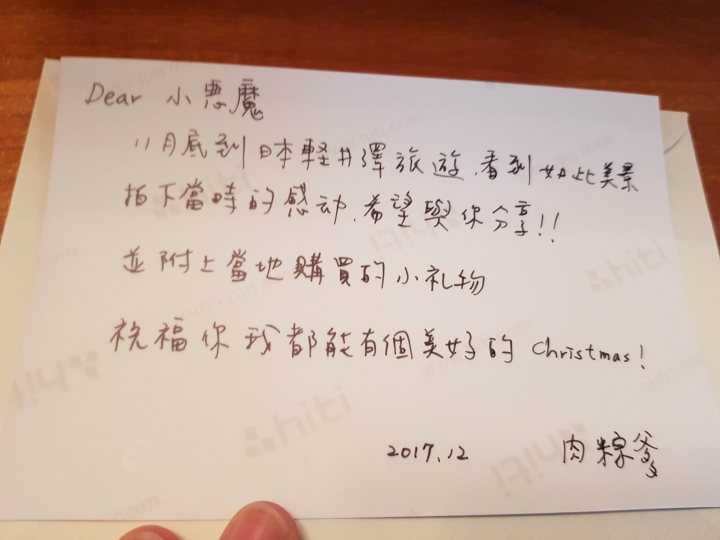 Dear 小悪魔
11月底到日本軽井澤旅遊,看到如此美景
拍下當時的感动,希望與你分享!!
並附上當地購買的小礼物
祝福你我都能有個美好的 Christmas!
2017.12 肉粽爹
hiti
hiti